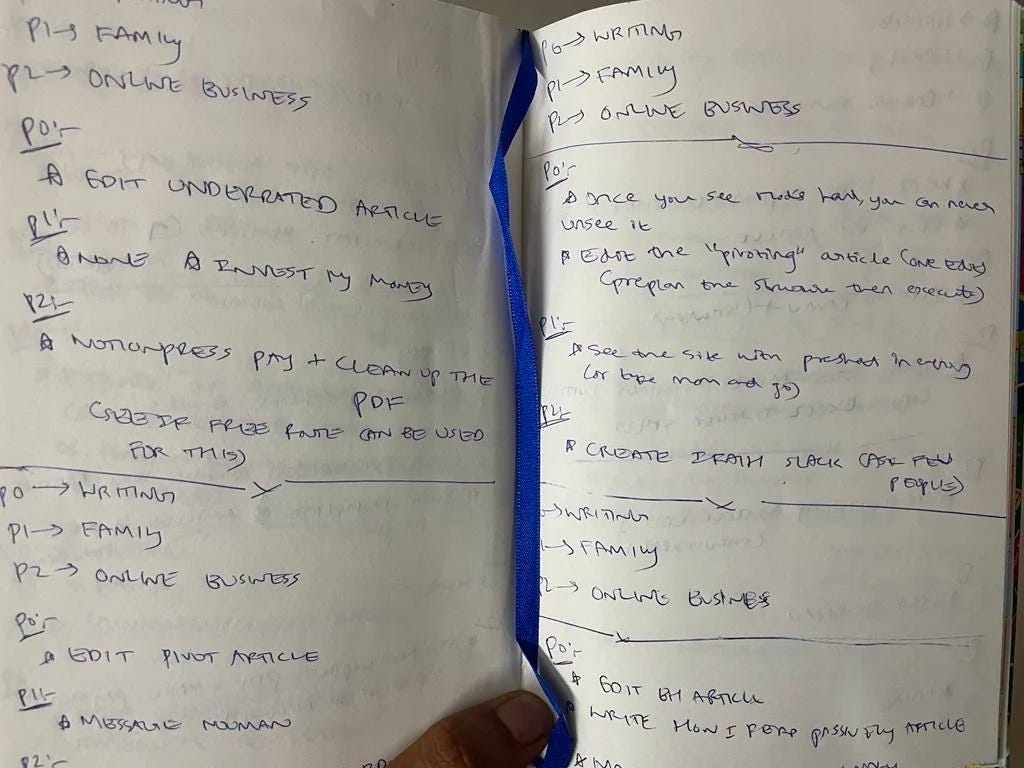 P1→ FAMILY
P2→ ONLINE BUSINESS
P0:-
EDIT UNDERRATED ARTICLE
P1:-
NONE INVEST MY MONEY
P2:-
NOTIONPRESS PAY + CLEAN UP THE
PDF
(SEE IF FREE ROUTE CAN BE USED
FOR THIS)
P0 → WRITING
P1→ FAMILY
P2→ ONLINE BUSINESS
P0:-
EDIT PIVOT ARTICLE
P1:-
MESSAGE NOUMAN
P2:-
P0→ WRITING
P1→ FAMILY
P2→ ONLINE BUSINESS
P0:-
Once you see you can never
unsee it
Edit the "pivoting" article (one edit)
(preplan the structure then execute)
P1:-
See the site with in evening
(or take mom and go)
P2:-
CREATE SLACK (ASK FEW
PEOPLE)
→WRITING
→ FAMILY
P2→ ONLINE BUSINESS
P0:-
EDIT BH ARTICLE
WRITE HOW I READ ARTICLE